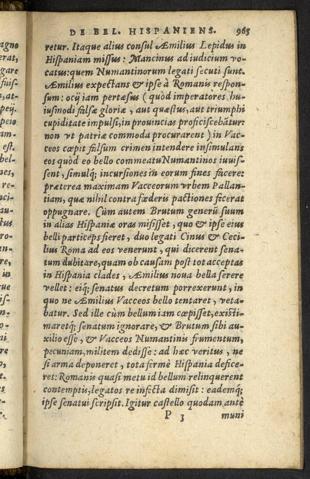 DE BEL. HISPANIENS. 965
retur. Itaque alius consul Æmilius Lepidus in
Hispaniam missus: Mancinus ad iudicium vo-
catus: quem Numantinorum legati secuti sunt.
Æmilius expectans & ipse à Romanis respon-
sum: ocij iam pertæsus (quòd imperatores huiusmodi
falsæ gloriæ, aut quæstus, aut triumphi
cupiditate impulsi, in prouincias proficiscebãtur:
non vt patriæ commoda procurarent) in Vac-
ceos cœpit falsum crimen intendere insimulans
eos quòd eo bello commeatu Numantinos iuuis-
sent, simulq; incursiones in eorum fines facere:
præterea maximam Vacceorum vrbem Pallan-
tiam, quæ nihil contra fœderis pactiones ficerat
oppugnare. Cùm autem Brutum generũ suum
in alias Hispaniæ oras misisset, quo & ipse eius
belli particeps fieret, duo legati Cinus & Ceci-
lius Roma ad eos venerunt, qui dicerent sena-
tum dubitare, quam ob causam post tot acceptas
in Hispania clades, Æmilius noua bella serere
vellet: eiq; senatus decretum porrexerunt, in
quo ne Æmilius Vacceos bello tentaret, veta-
batur. Sed ille cùm bellum iam cœpisset, existi-
maretq; senatum ignorare, & Brutum sibi au-
xilio esse, & Vacceos Numantinis frumentum,
pecuniam, militem dedisse: ad hæc veritus, ne
si arma deponeret, tota fermè Hispania defice-
ret: Romanis quasi metu id bellum relinquerent
contemptis; legatos re infecta dimisit: eademq;
ipse senatui scripsit. Igitur castello quodam antè
P 3 muni